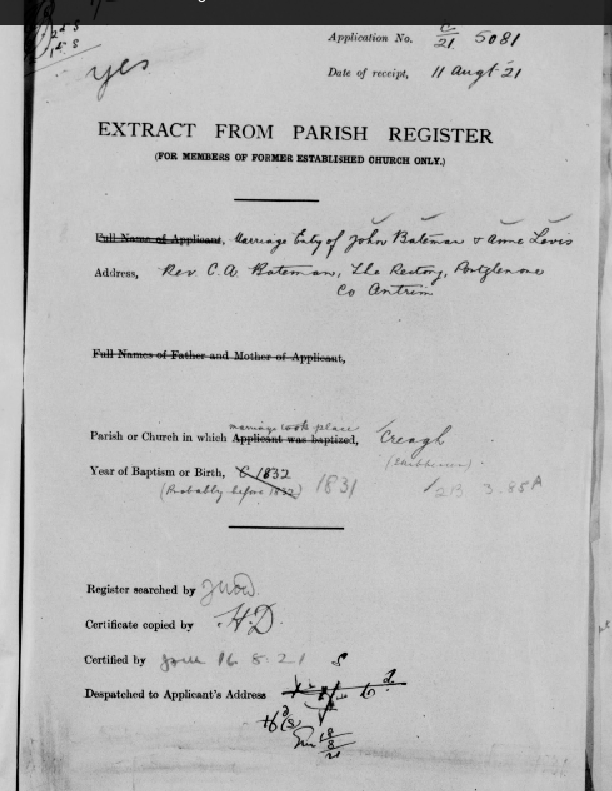 2nd S
1st S
yes
Application No. C/21 5081
Date of receipt, 11 Augt '21
EXTRACT FROM PARISH REGISTER
(FOR MEMBERS OF FORMER ESTABLISHED CHURCH ONLY.)
Full Name of Applicant, Marriage Entry of John Bateman & Anne Lewis
Address, Rev. C. A. Bateman, The Rectory, Portglenone
Co Antrim
Full Names of Father and Mother of Applicant,
marriage took place
Parish or Church in which Applicant was baptized, Creagh
(Skibbereen)
Year of Baptism or Birth, C 1832
(Probably before 1832) 1831 2B 3. 85A
Register searched by
Certificate copied by HD.
Certified by 16 8. 21
Despatched to Applicant's Address
18/8/21